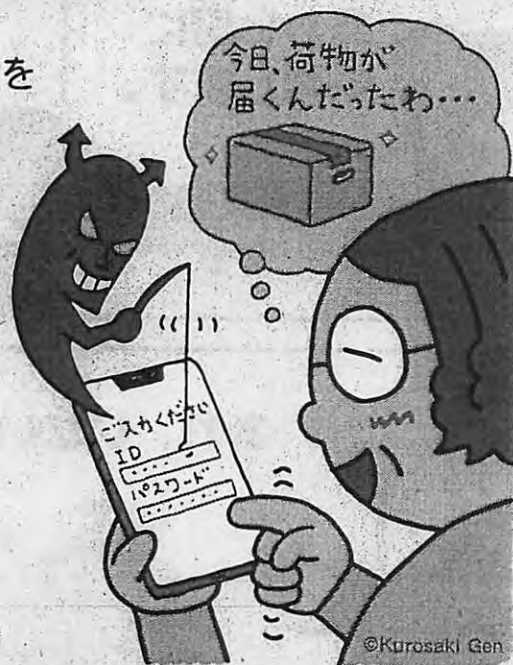 を
今日、荷物が
届くんだったわ・・・
ご入力ください
ID
パスワード
©Kurosaki Gen